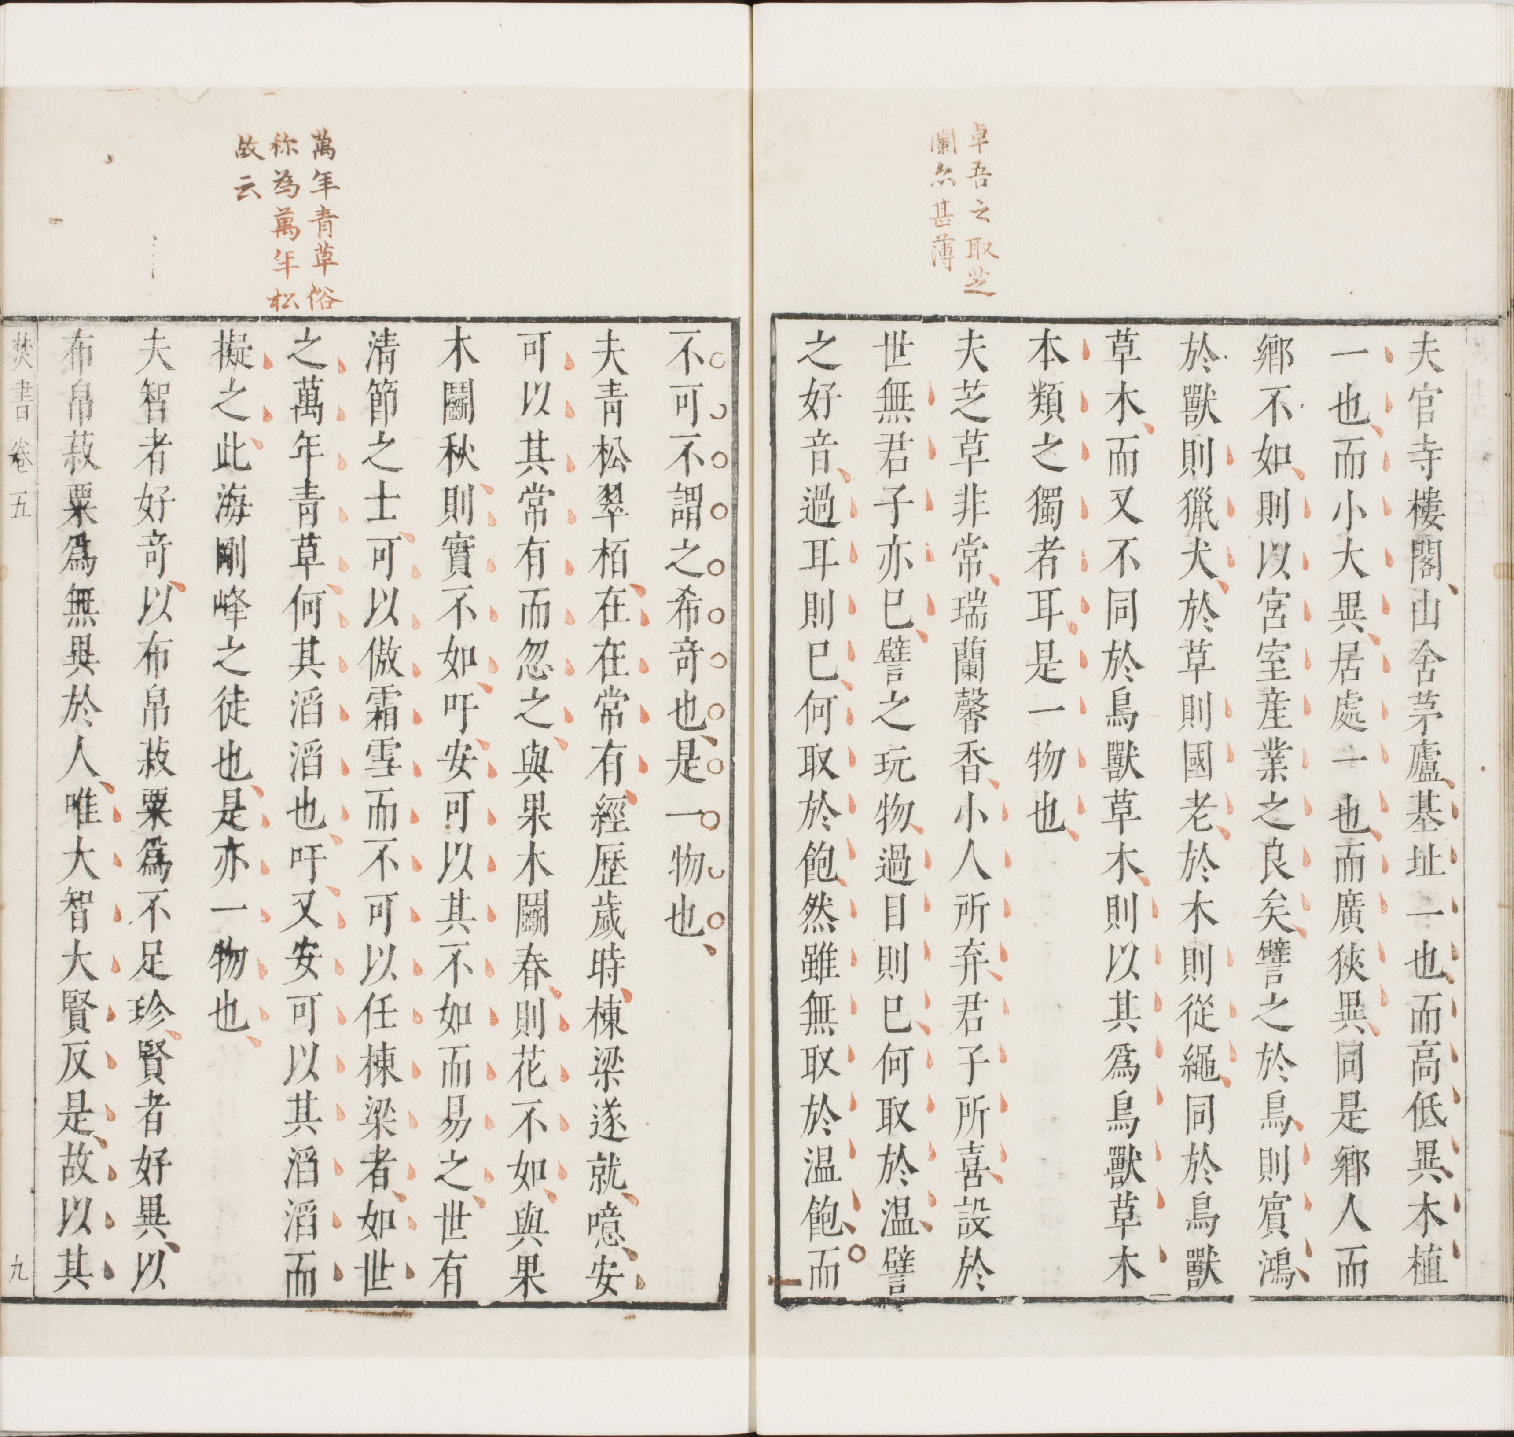 卓吾之取芝
蘭亦甚薄
夫官寺樓閣山舍茅廬基址一也而高低異木植
一也而小大異居處一也而廣狹異同是鄉人而
鄉不如則以宮室産業之良矣譬之於鳥則賓鴻
於獸則獵犬於草則國老於木則從繩同於鳥獸
草木而又不同於鳥獸草木則以其爲鳥獸草木
本類之獨者耳是一物也
夫芝草非常瑞蘭馨香小人所弃君子所喜設於
世無君子亦已譬之玩物過目則已何取於温譬
之好音過耳則已何取於飽然雖無取於温飽而
萬年青草俗
称為萬年松
故云
不可不謂之希奇也是一物也
夫青松翠栢在在常有經歷歲時棟梁遂就噫安
可以其常有而忽之與果木鬬春則花不如與果
木鬬秋則實不如吁安可以其不如而易之世有
清節之士可以傲霜雪而不可以任棟梁者如世
之萬年青草何其滔滔也吁又安可以其滔滔而
擬之此海剛峰之徒也是亦一物也
夫智者好奇以布帛菽粟爲不足珍賢者好異以
布帛菽粟爲無異於人唯大智大賢反是故以其
焚書卷五
九